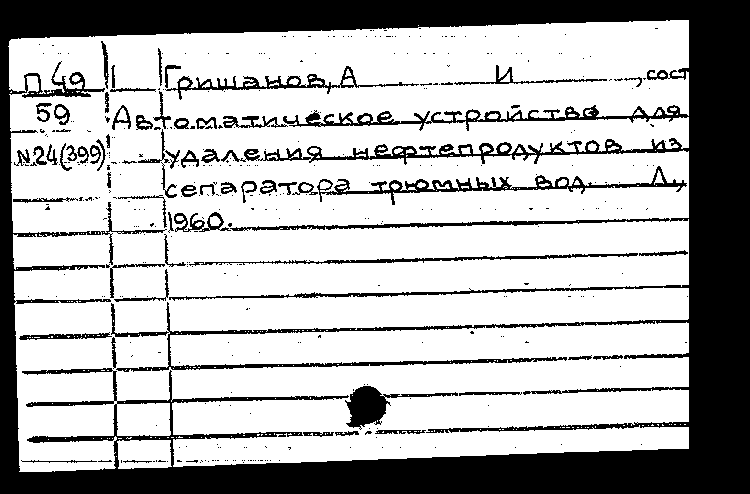 П 49 1 Гришанов, А И , сост
59 Автоматическое устройство для
N24(399) удаления нефтепродуктов из
сепаратора трюмных вод. Л.,
1960.